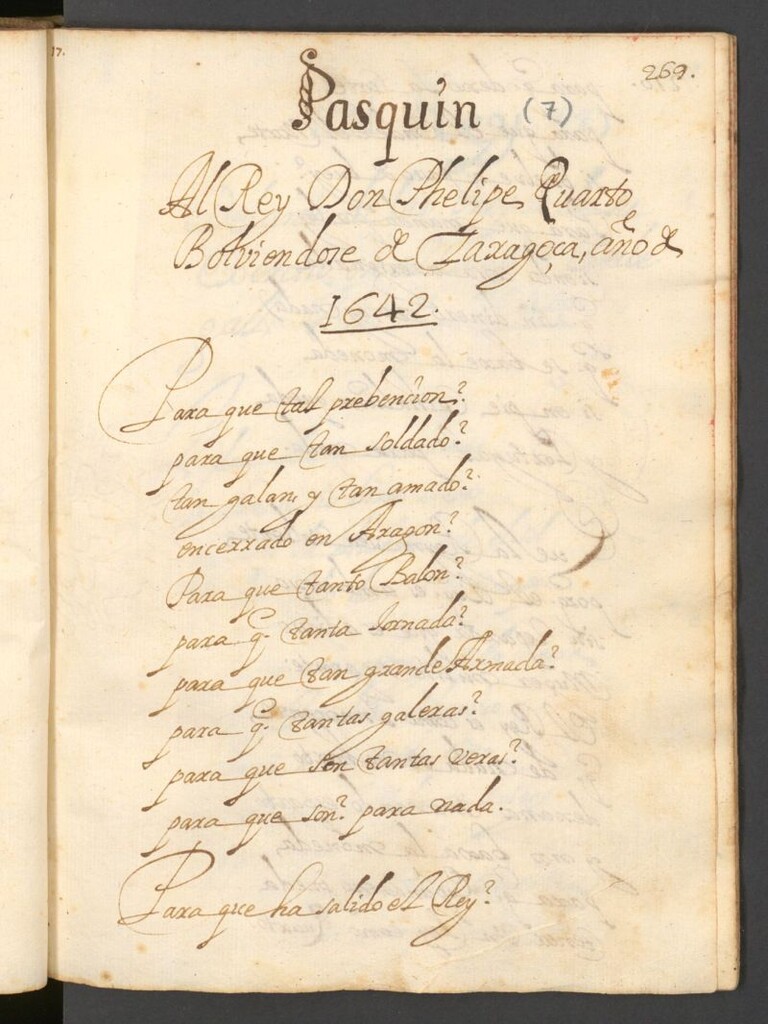 17.
269.
Pasquin (7)
Al Rey Don Phelipe Quarto
Bolviendose de Zaragoça, año de
1642.
Para que tal prebencion?
para que tan soldado?
tan galan, y tan amado?
encerrado en Aragon?
Para que tanto Balon?
para q. tanta Jornada?
para que tan grande Armada?
para q. tantas galeras?
para que son tantas veras?
para que son? para nada.
Para que ha salido el Rey?